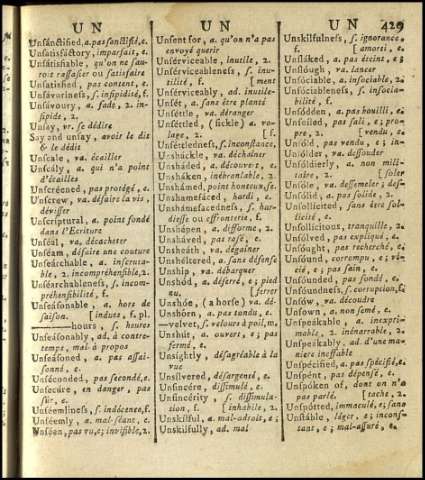 UN
UN
UN 429
Unsánctified, a. pas sanctifié, e.
Unsatisfáctory, imparfait, e.
Unsátisfiable, qu'on ne sauroit
rassasier ou satisfaire
Unsátisfied, pas content, e.
Unsávoriness, f. insipidité, f.
Unsávoury, a. fade, 2. insipide,
2.
Unsáy, vr. se dédire
Say and unsay, avoir le dit
& le dédit
Unscale, va. écailler
Unscály, a. qui n'a point
d'écailles
Unscréened, pas protégé, e.
Unscrew, va. défaire la vis,
dévisser
Unscríptural, a. point fondé
dans l'Ecriture
Unséal, va. décacheter
Unséam, défaire une couture
Unséarchable, a. inscrutable,
2. incompréhensible, 2.
Unséarchableness, f. incompréhensibilité,
f.
Unséasonable, a. hors de
saison. [indues, f. pl.
—hours, f. heures
Unséasonably, ad. à contretemps,
mal à propos
Unséasoned, a. pas assaisonné,
e.
Unséconded, pas secondé, e.
Unsecúre, en danger, pas
sûr, e.
Unséemliness, f. indécence, f.
Unséemly, a. mal-séant, e.
Unséen, pas vu, e; invisible, 2.
Unsent for, a. qu'on n'a pas
envoyé querir
Unsérviceable, inutile, 2.
Unsérviceableness, f. inutilité,
f. [ment
Unsérviceably, ad. inutile-
Unsét, a. sans être planté
Unséttle, va. déranger
Unséttled, (fickle) a. volage,
2. [f.
Unséttledness, f. inconstance,
Unsháckle, va. déchaîner
Unsháded, a. découvert, e.
Unsháken, inébranlable, 2.
Unshámed, point honteux, se.
Unshamefáced, hardi, e.
Unshamefácedness, f. hardiesse
ou effronterie, f.
Unshápen, a. difforme, 2.
Unsháved, pas rasé, e.
Unshéath, va. dégaîner
Unshéltered, a. sans défense
Unship, va. débarquer
Unshód, a. déferré, e; pied
nu, e. [ferrer
Unshóe, (a horse) va. dé-
Unshórn, a. pas tondu, e.
—velvet, f. velours à poil, m.
Unshút, a. ouvert, e; pas
fermé, e.
Unsíghtly, désagréable à la
vue
Unsílvered, désargenté, e.
Unsincére, dissimulé, e.
Unsincérity, f. dissimulation,
f. [inhabile, 2.
Unskílful, a. mal-adroit, e;
Unskílfully, ad. mal
Unskilfulness, f. ignorance,
f. [amorti, e.
Unsláked, a. pas éteint, e;
Unslóugh, va. lancer
Unsóciable, insociable, 2.
Unsóciableness, f. insociabilité,
f.
Unsódden, a. pas bouilli, e.
Unsoíled, pas sali, e; propre,
2. [vendu, e.
Unsóld, pas vendu, e; in-
Unsólder, va. dessouder
Unsóldierly, a. non militaire,
2. [soler
Unsóle, va. dessemeler; des-
Unsólid, a. pas solide, 2.
Unsolícited, sans être sollicité,
e.
Unsolícitous, tranquille, 2.
Unsólved, pas expliqué, e.
Unsóught, pas recherché, e.
Unsóund, corrompu, e; vicié,
e; pas sain, e.
Unsóunded, pas sondé, e.
Unsóundness, f. corruption, f.
Unsów, va. découdre
Unsown, a. non semé, e.
Unspéakable, a. inexprimable,
2. inénarrable, 2.
Unspéakably, ad. d'une manière
ineffable
Unspécified, a. pas spécifié, e.
Unspént, pas dépensé, e.
Unspóken of, dont on n'a
pas parlé. [tache, 2.
Unspótted, immaculé, e; sans
Unstáble, léger, e; inconstant,
e; mal-assuré, e.